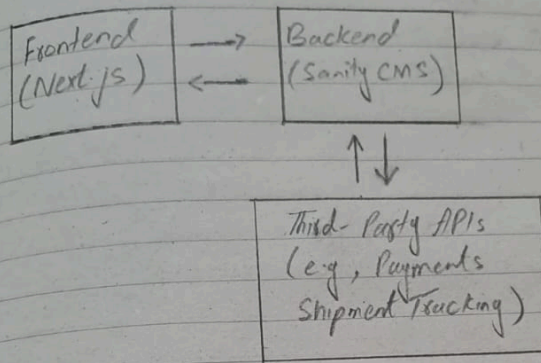 Frontend
(Next.js)
Backend
(Sanity CMS)
Third-Party APIs
(e.g, Payments
Shipment Tracking)